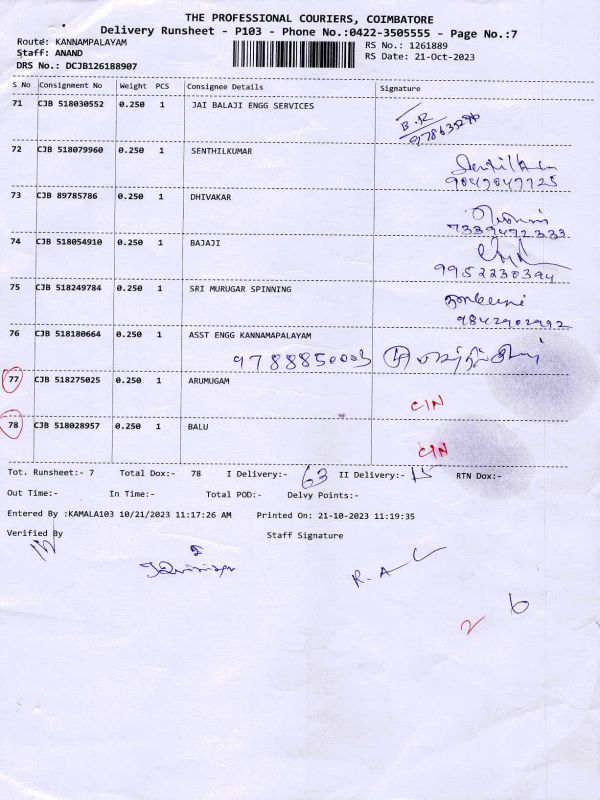 THE PROFESSIONAL COURIERS, COIMBATORE
Delivery Runsheet - P103 - Phone No.:0422-3505555 - Page No.:7
Route: KANNAMPALAYAM RS No.: 1261889
Staff: ANAND RS Date: 21-Oct-2023
DRS No.: DCJB126188907
S No Consignment No Weight PCS Consignee Details Signature
71 CJB 518030552 0.250 1 JAI BALAJI ENGG SERVICES
B.R
72 CJB 518079960 0.250 1 SENTHILKUMAR
9047047725
73 CJB 89785786 0.250 1 DHIVAKAR
7339472333
74 CJB 518054910 0.250 1 BAJAJI
9952230394
75 CJB 518249784 0.250 1 SRI MURUGAR SPINNING
9842902992
76 CJB 518180664 0.250 1 ASST ENGG KANNAMAPALAYAM
9788850003
77 CJB 518275025 0.250 1 ARUMUGAM
C/N
78 CJB 518028957 0.250 1 BALU
C/N
Tot. Runsheet:- 7 Total Dox:- 78 I Delivery:- 63 II Delivery:- 15 RTN Dox:-
Out Time:- In Time:- Total POD:- Delvy Points:-
Entered By :KAMALA103 10/21/2023 11:17:26 AM Printed On: 21-10-2023 11:19:35
Verified By Staff Signature
2 6